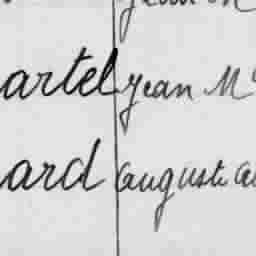 artel Jean M
ard auguste